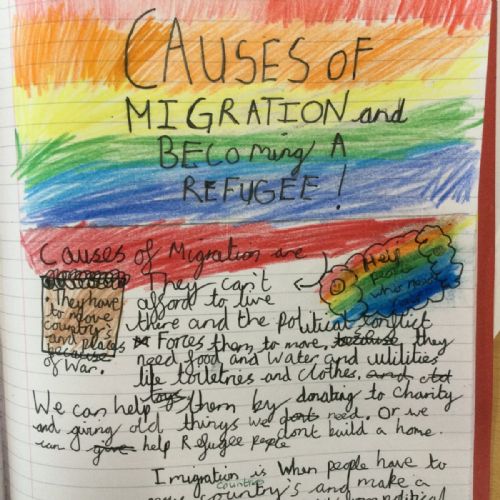 CAUSES OF
MIGRATION and
BEComing A
REFUGEE!
Causes of Migration are
They can't
afford to live
there and the Political conflict
Forces them to move, because they
need food and water and utilities
life toiletries and clothes, and old
toys
. They have
to move
country's
and places
because
of war.
Help
people
who
We can help them by donating to charity
and giving old things we dont need. Or we
can give help Refugee people dont build a home.
Imigration is when people have to
country's
country's and make a